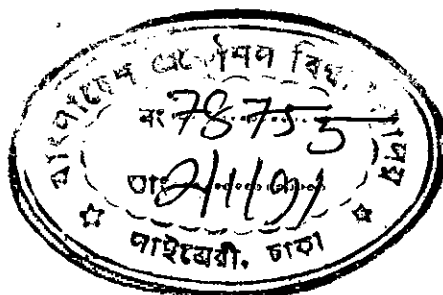 বাংলাদেশ প্রকৌশল বিশ্ববিদ্যালয়
নং 78755
তাং 2/1/91
লাইব্রেরী, ঢাকা